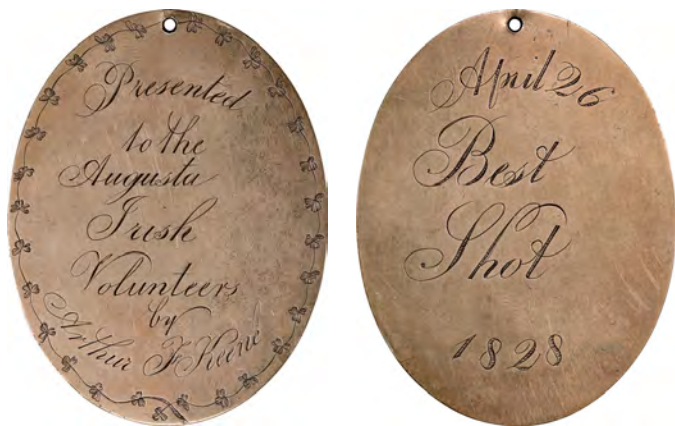 Presented
to the
Augusta
Irish
Volunteers
by
Arthur F Keene
April 26
Best
Shot
1828